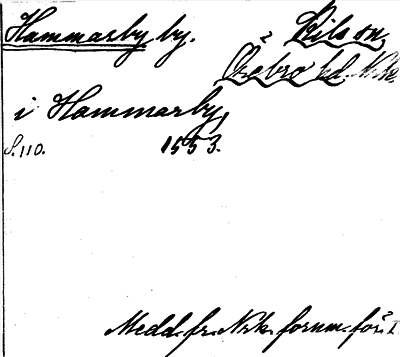 Hammarby by.
Örebro hd. Nrke
i Hammarby,
S. 110. 1553.
Medd. fr. Nrk. fornm.för. I